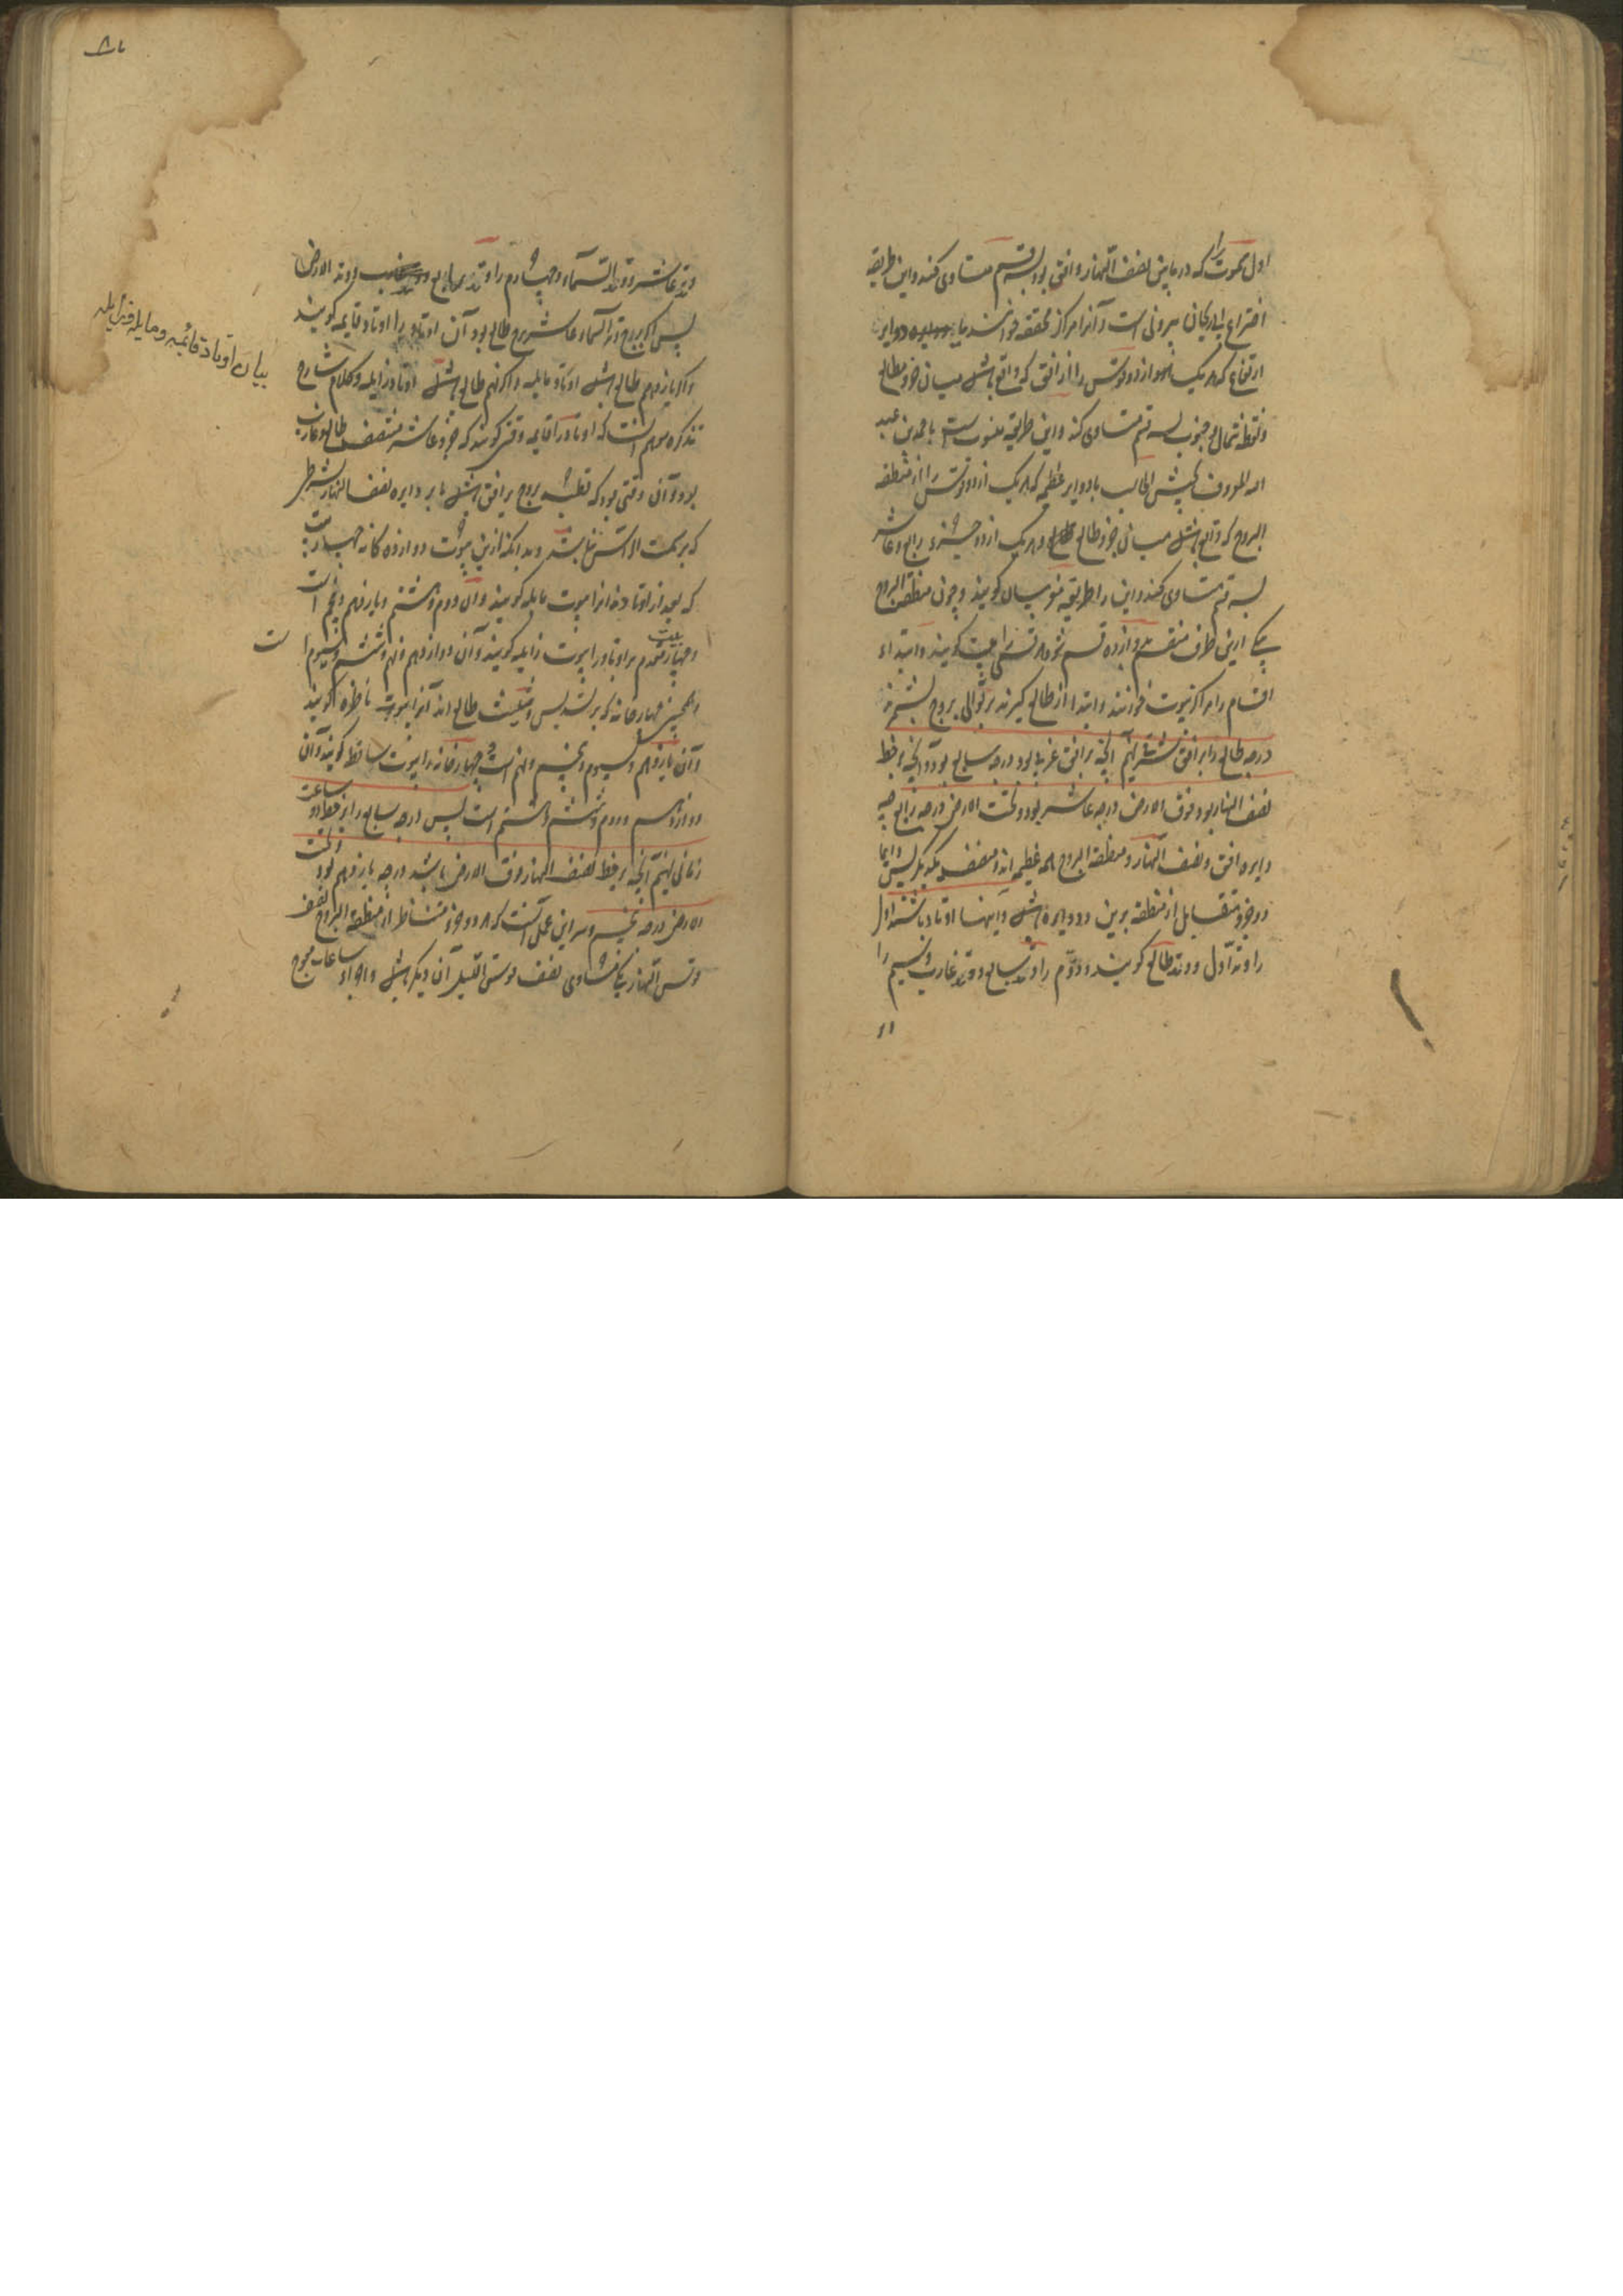 اول سموت را که در مابین نصف النهار و افق بود بسه قسم متساوی کنند و این طریقه
اختراع ابی ریحان بیرونی است و آنرا مراکز محققه خوانند یا دوایر
ارتفاع که هر یک از دو قوس را از افق که واقع باشد میان جزو طالع
و نقطه شمال و جنوب بسه قسم متساوی کند و این طریقه منسوبست با حمد بن عبد
الله المعروف بحبش الحاسب یا دوایر عظیمه که هر یک از دو قوس را از منطقه
البروج که واقع باشد میان جزو طالع و هر یک از دو جزو رابع و عاشر
بسه قسم متساوی کنند و این را طریقه مغربیان گویند و چون منطقة البروج
بیکی ازین طرق منقسم بدوازده قسم شود هر قسمی را بیت گویند و ابتداء
اقسام را مراکز بیوت خوانند و ابتدا از طالع گیرند بر توالی بروج
درجه طالع را بر افق شرقی نهیم آنچه بر افق غربی بود درجه سابع بود و آنچه بر خط
نصف النهار بود فوق الارض درجه عاشر بود و تحت الارض درجه رابع چه
دایره افق و نصف النهار و منطقة البروج همه عظیمه اند و منصف یکدیگر پس دایما
دو جزو متقابل از منطقه برین دو دایره باشد و اینها اوتاد باشند اول
را وتد اول و وتد طالع گویند و دوم را وتد سابع و وتد غارب و سیم را
وتد عاشر و وتد السماء و چهارم را وتد رابع و وتد الارض
پس اگر برج وتد السماء عاشر برج طالع بود آن اوتاد را اوتاد قایمه گویند
و اگر یازدهم طالع باشد اوتاد مایله و اگر نهم طالع باشد اوتاد زایله و کلام شارح
تذکره موهم آنست که اوتاد را قایمه وقتی گویند که جزو عاشر منتصف طالع و غارب
بود و آن وقتی بود که قطب بروج بر افق باشد یا بر دایره نصف النهار بشرط
که بر سمت الراس نباشد و بدانکه ازین بیوت دوازده گانه چهار بیت
که بعد از اوتادند انرا بیوت مایله گویند و آن دوم و هشتم و یازدهم و پنجم است
و چهار بیت مقدم بر اوتاد را بیوت زایله گویند و آن دوازدهم و نهم و ششم و سیوم است
و همچنین چهار خانه که بر تسدیس و تثلیث طالع اند آنرا بیوت ناظره گویند
و آن یازدهم و سیوم و پنجم و نهم است و چهار خانه را بیوت ساقط گویند و آن
دوازدهم و دوم و ششم و هشتم است پس درجه سابع را بر خط دو ساعت
زمانی نهیم آنچه بر خط نصف النهار فوق الارض باشد درجه یازدهم بود و تحت
الارض درجه پنجم و سر این عمل آنست که هر دو جزو متناظر از منطقة البروج نصف
قوس النهار یکی مساوی نصف قوس اللیل آن دیگر باشد و اجزاء ساعات معوج
بیان اوتاد قائمه و مایله و زایله